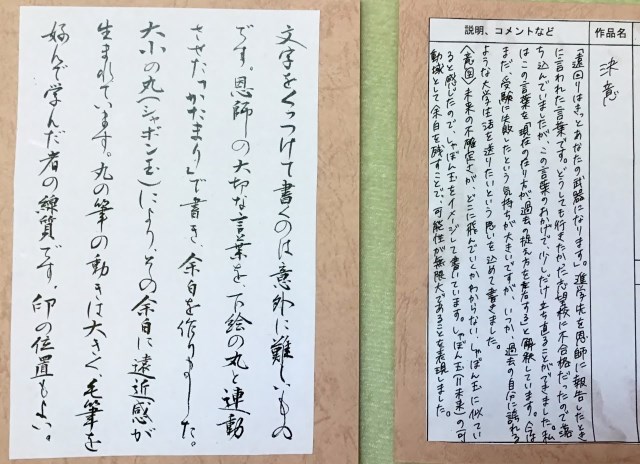 説明、コメントなど
作品名
決意
「遠回りはきっとあなたの武器になります」。進学先を恩師に報告したとき
に言われた言葉です。どうしても行きたかった志望校に不合格だったので落
ち込んでいましたが、この言葉のおかげで、少しだけ立ち直ることができました。私
はこの言葉を「現在の在り方が過去の捉え方を左右する」と解釈しています。今は
まだ、受験に失敗したという気持ちが大きいですが、いつか、過去の自分に誇れる
ような大学生活を送りたいという思いを込めて書きました。
〈意図〉未来の不確定さが、どこに飛んでいくかわからないしゃぼん玉に似てい
ると感じたので、しゃぼん玉をイメージして書いています。しゃぼん玉=未来の「可
動域として余白を残すことで、可能性が無限大であることを表現しました。
文字をくっつけて書くのは意外に難しいもの
です。恩師の大切な言葉を、下絵の丸と連動
させた「かたまり」で書き、余白を作りました。
大小の丸(シャボン玉)により、その余白に遠近感が
生まれています。丸の筆の動きは大きく、毛筆を
好んで学んだ者の線質です。印の位置もよい。